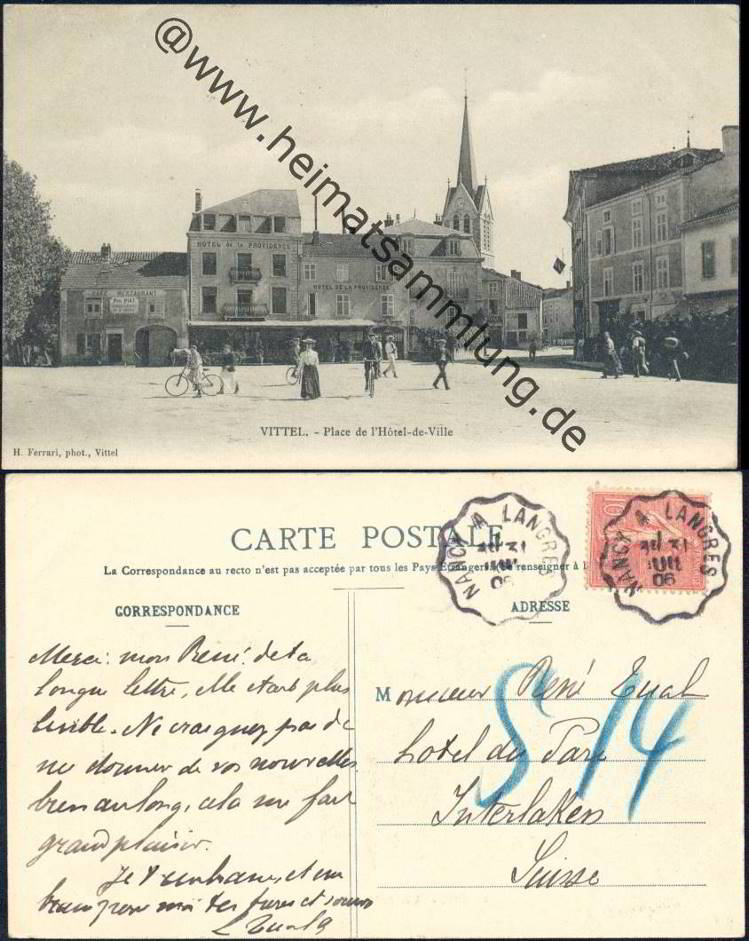 @www.heimatsammlung.de
HÔTEL de la PROVIDENCE
HÔTEL DE LA PROVIDENCE
CAFÉ RESTAURANT
VITTEL. - Place de l'Hôtel-de-Ville
H. Ferrari, phot., Vittel
CARTE POSTALE
La Correspondance au recto n'est pas acceptée par tous les Pays Étrangers (Se renseigner à l
CORRESPONDANCE
ADRESSE
NANCY A LANGRES
31
JUIL
06
10
NANCY A LANGRES
31
JUIL
06
Merci mon René de ta
longue lettre, elle était plus
lisible. Ne craignez pas de
me donner de vos nouvelles
bien au long, cela me fait
grand plaisir.
Je t'embrasse, et
pour moi tes
Monsieur René
hotel du Parc
Interlaken
Suisse
514